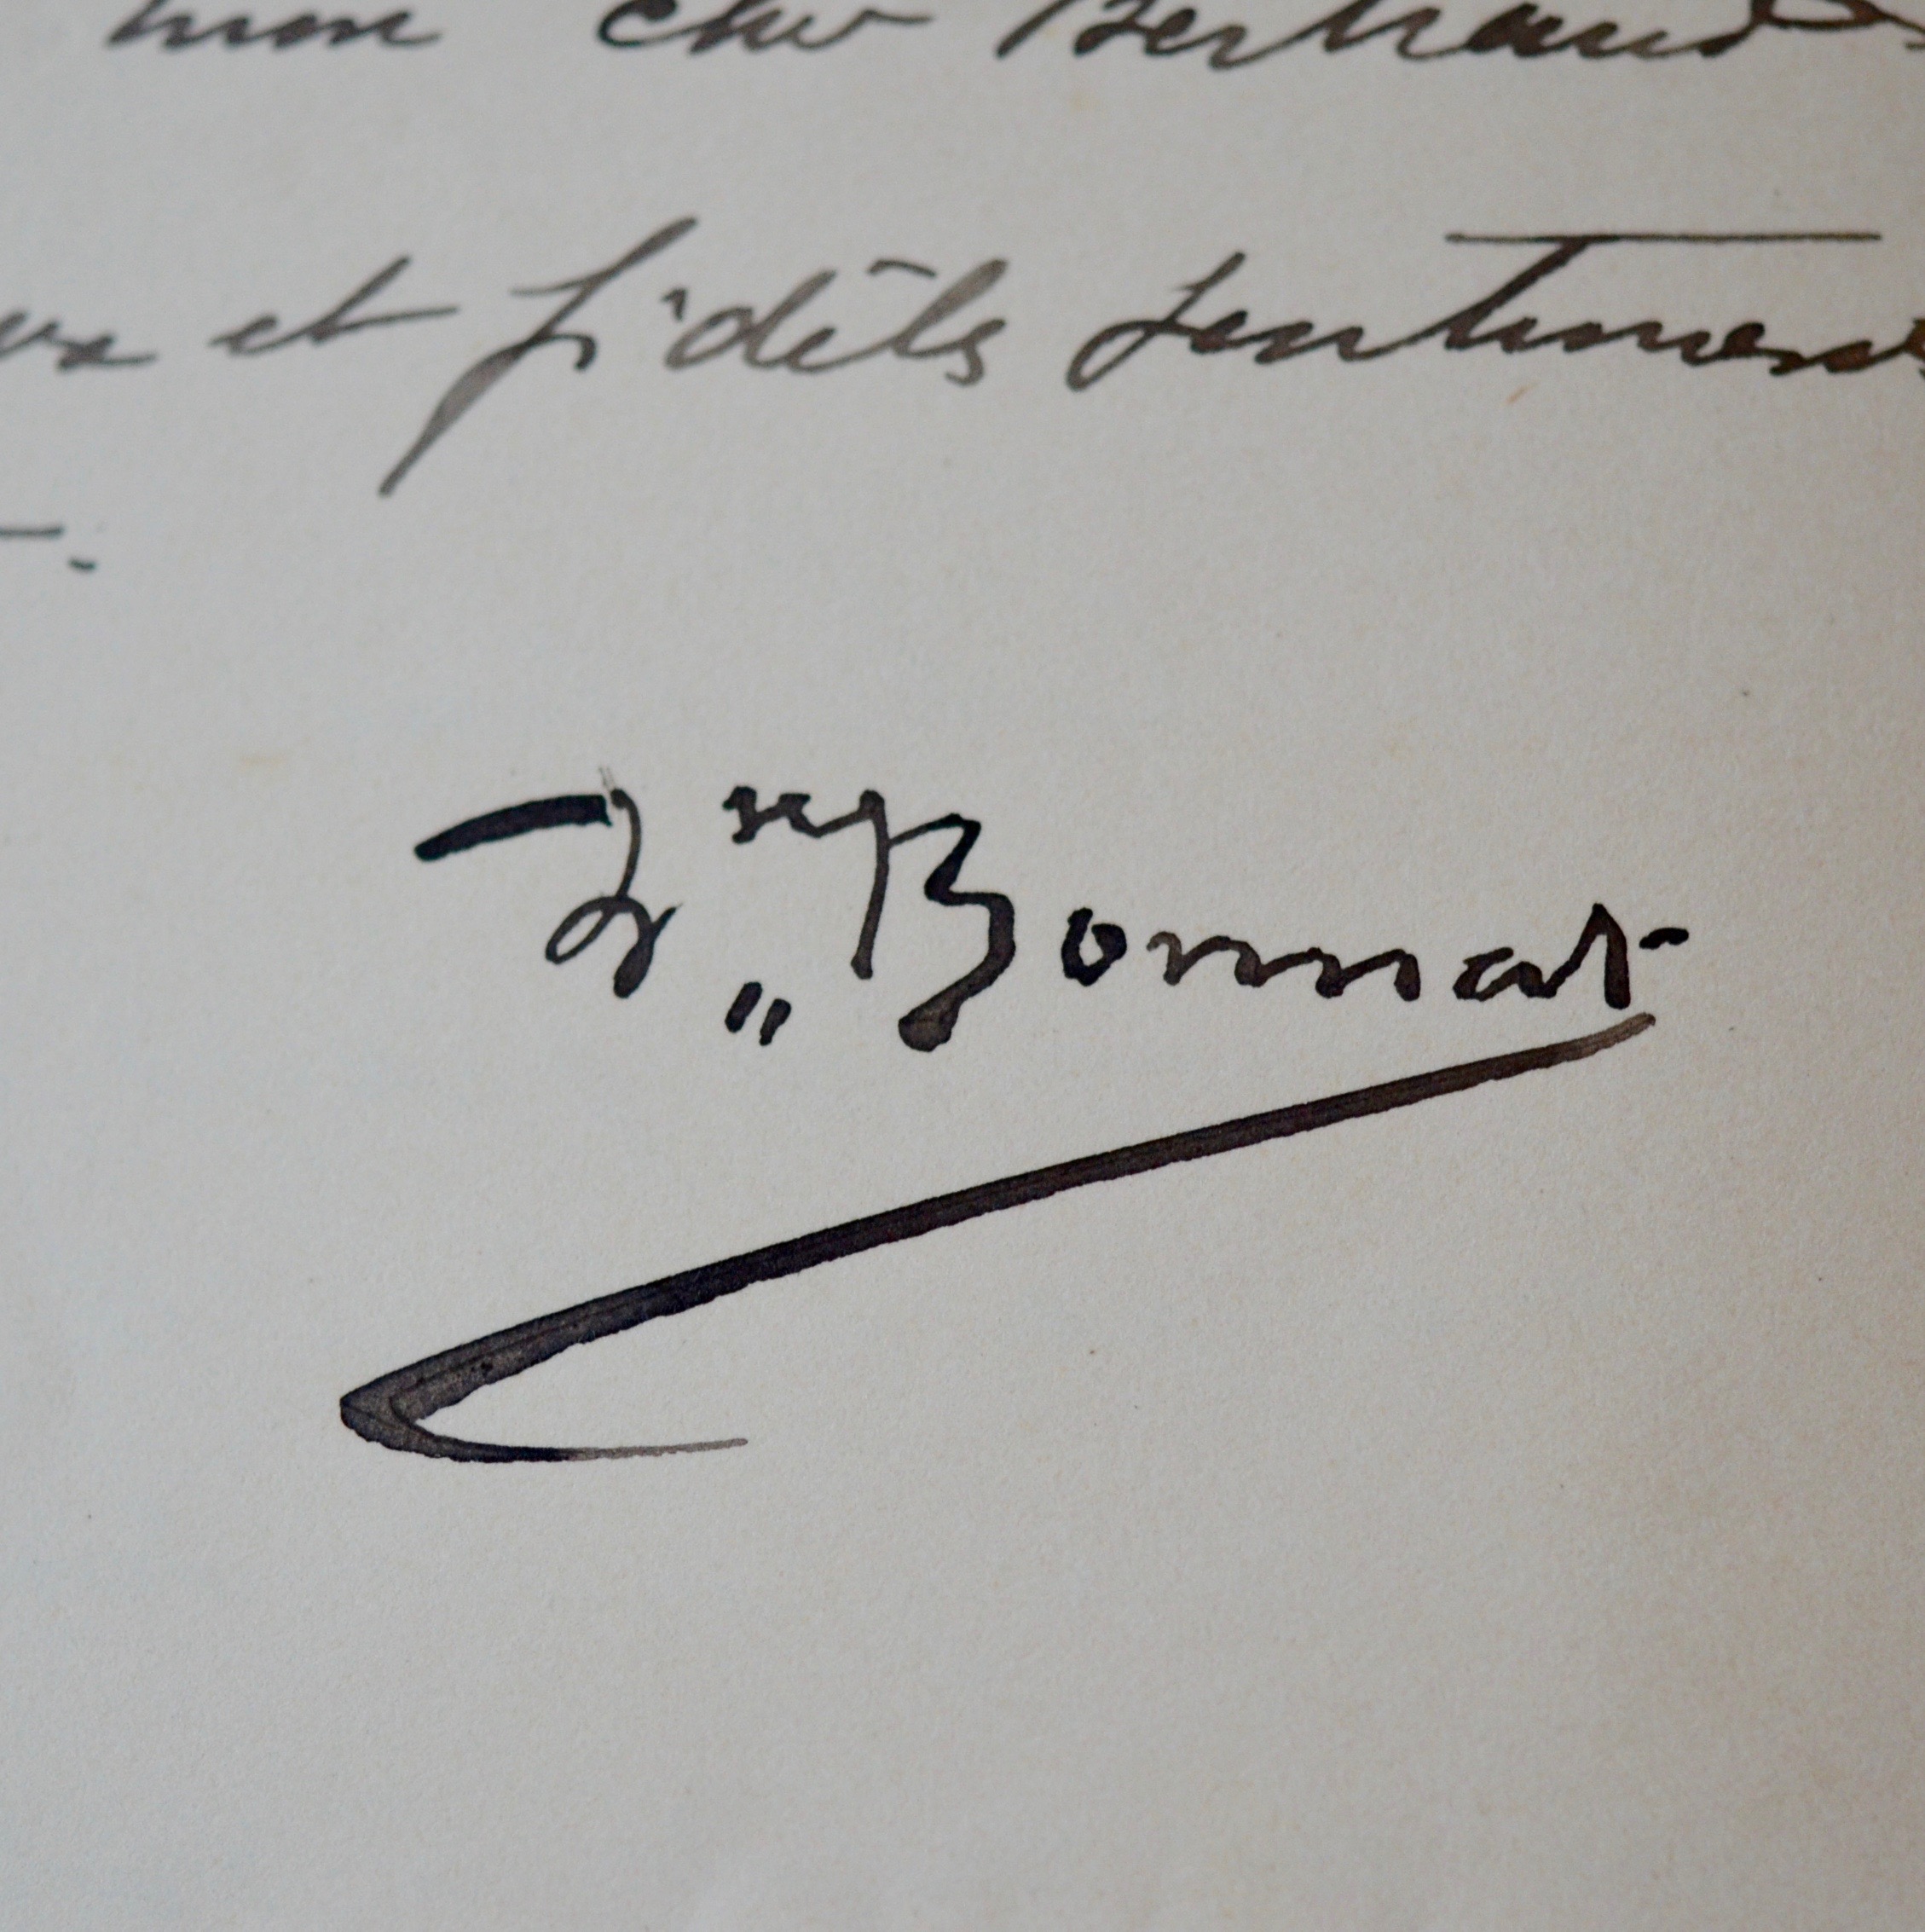 mon cher Bertrand
et fidèles sentiments
Jn Bonnat